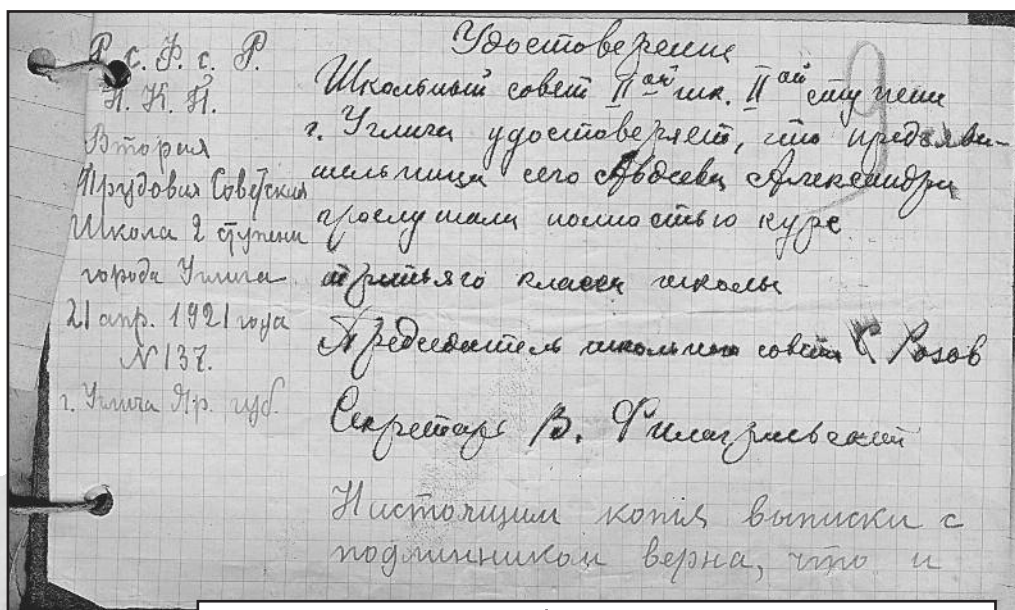 Р. С. Ф. С. Р.
Н. К. П.
Вторая
Трудовая Советская
Школа 2 ступени
города Углича
21 апр. 1921 года
№ 137.
г. Углич Яр. губ.
Удостоверение
Школьный совет IIой шк. IIой ступени
г. Углича удостоверяет, что предъяви-
тельница сего Авдеева Александра
прослушала полностью курс
третьяго класса школы
Председатель школьного совета С Розов
Секретарь В. Филагриевский
Настоящим копія выписки с
подлинником верна, что и
9